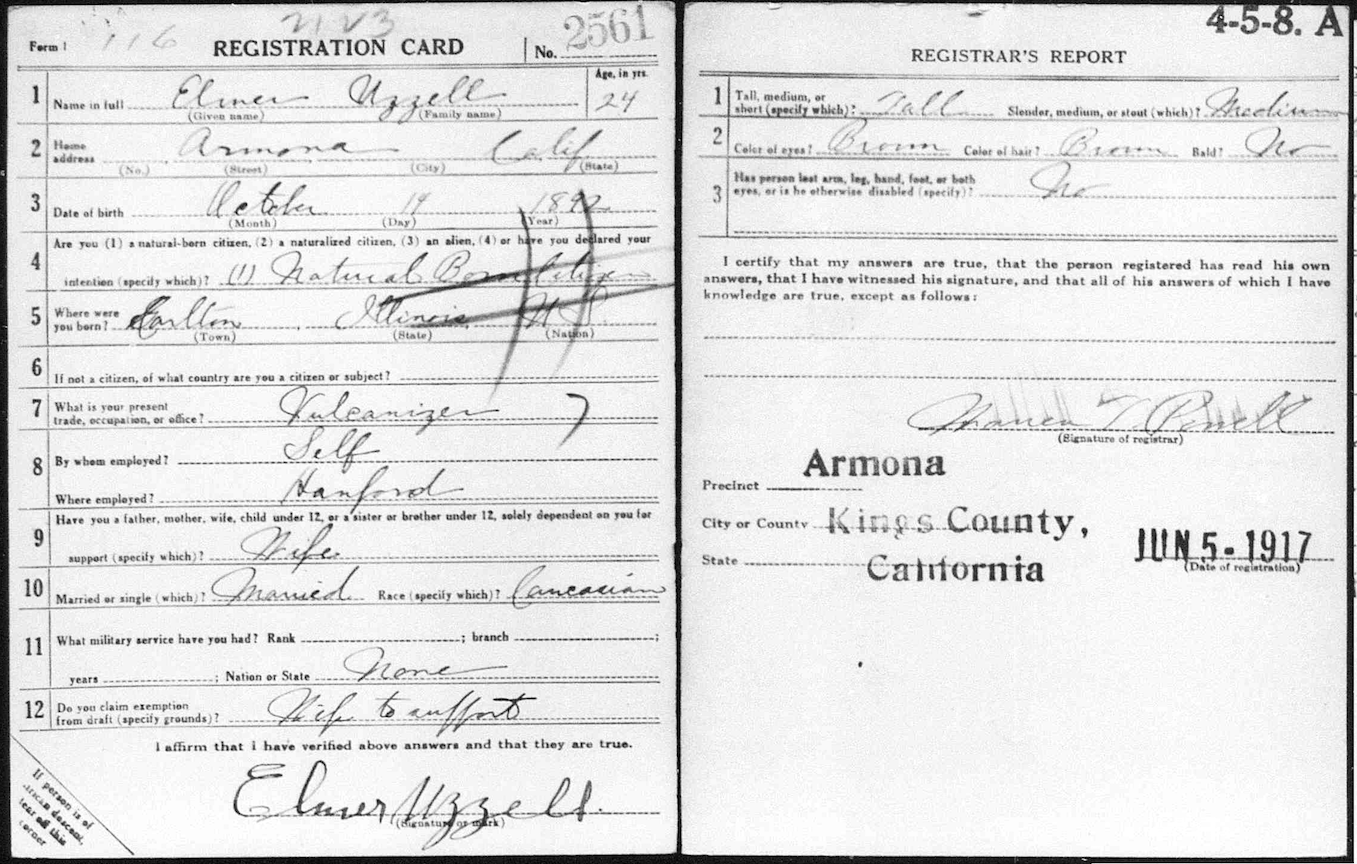 116 2123
Form 1 REGISTRATION CARD No. 2561
1 Name in full Elmer Uzzell Age, in yrs. 24
(Given name) (Family name)
2 Home address Armona Calif
(No.) (Street) (City) (State)
3 Date of birth October 19 1892
(Month) (Day) (Year)
4 Are you (1) a natural-born citizen, (2) a naturalized citizen, (3) an alien, (4) or have you declared your
intention (specify which)? (1) Natural Born Citizen
5 Where were you born? Earlton, Illinois, U.S.
(Town) (State) (Nation)
6 If not a citizen, of what country are you a citizen or subject?
7 What is your present trade, occupation, or office? Vulcanizer
8 By whom employed? Self
Where employed? Hanford
9 Have you a father, mother, wife, child under 12, or a sister or brother under 12, solely dependent on you for
support (specify which)? Wife
10 Married or single (which)? Married Race (specify which)? Caucasian
11 What military service have you had? Rank ; branch ;
years ; Nation or State None
12 Do you claim exemption from draft (specify grounds)? Wife to support
I affirm that I have verified above answers and that they are true.
Elmer Uzzell.
(Signature or mark)
If person is of
African descent,
tear off this
corner
4-5-8. A
REGISTRAR'S REPORT
1 Tall, medium, or short (specify which)? Tall Slender, medium, or stout (which)? Medium
2 Color of eyes? Brown Color of hair? Brown Bald? No
3 Has person lost arm, leg, hand, foot, or both
eyes, or is he otherwise disabled (specify)? No
I certify that my answers are true, that the person registered has read his own
answers, that I have witnessed his signature, and that all of his answers of which I have
knowledge are true, except as follows:
(Signature of registrar)
Precinct Armona
City or County Kings County,
State California
JUN 5 - 1917
(Date of registration)